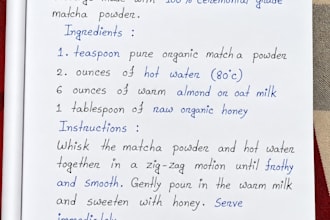 made with 100% Ceremonial grade
matcha powder.
Ingredients :
1. teaspoon pure organic matcha powder
2. ounces of hot water (80°c)
6 ounces of warm almond or oat milk
1 tablespoon of raw organic honey
Instructions :
Whisk the matcha powder and hot water
together in a zig-zag motion until frothy
and smooth. Gently pour in the warm milk
and sweeten with honey. Serve
immediately